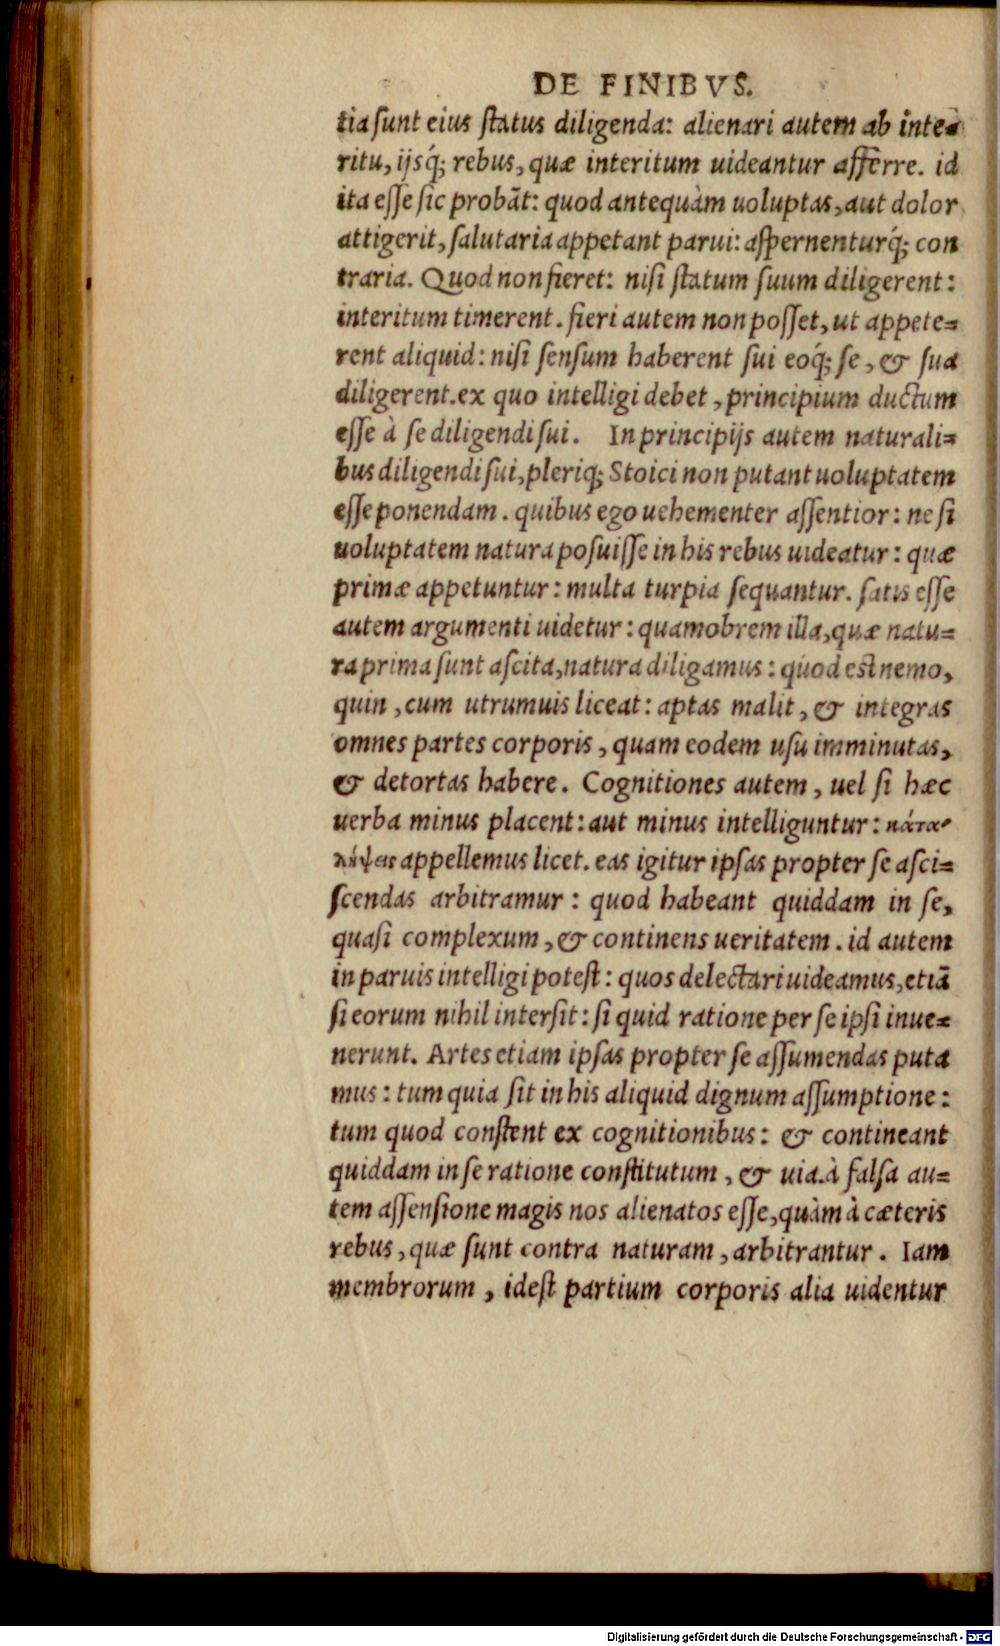 DE FINIBVS.
tia ſunt eius ſtatus diligenda: alienari autem ab inte=
ritu, ijsq́; rebus, quæ interitum uideantur afferre. id
ita eſſe ſic probãt: quod antequàm uoluptas, aut dolor
attigerit, ſalutaria appetant parui: aſpernenturq́; con
traria. Quod non fieret: niſi ſtatum ſuum diligerent:
interitum timerent. fieri autem non poſſet, ut appete=
rent aliquid: niſi ſenſum haberent ſui eoq́; ſe, & ſua
diligerent. ex quo intelligi debet, principium ductum
eſſe à ſe diligendi ſui. In principijs autem naturali=
bus diligendi ſui, pleriq; Stoici non putant uoluptatem
eſſe ponendam. quibus ego uehementer aſſentior: ne ſi
uoluptatem natura poſuiſſe in his rebus uideatur: quæ
primæ appetuntur: multa turpia ſequantur. ſatis eſſe
autem argumenti uidetur: quamobrem illa, quæ natu=
ra prima ſunt aſcita, natura diligamus: quod eſt nemo,
quin, cum utrumuis liceat: aptas malit, & integras
omnes partes corporis, quam eodem uſu imminutas,
& detortas habere. Cognitiones autem, uel ſi hæc
uerba minus placent: aut minus intelliguntur: κάτα
λήψεις appellemus licet. eas igitur ipſas propter ſe aſci=
ſcendas arbitramur: quod habeant quiddam in ſe,
quaſi complexum, & continens ueritatem. id autem
in paruis intelligi poteſt: quos delectari uideamus, etiã
ſi eorum nihil interſit: ſi quid ratione per ſe ipſi inue=
nerunt. Artes etiam ipſas propter ſe aſſumendas puta
mus: tum quia ſit in his aliquid dignum aſſumptione:
tum quod conſtent ex cognitionibus: & contineant
quiddam in ſe ratione conſtitutum, & uia. à falſa au=
tem aſſenſione magis nos alienatos eſſe, quàm à cæteris
rebus, quæ ſunt contra naturam, arbitrantur. Iam
membrorum, ideſt partium corporis alia uidentur
Digitalisierung gefördert durch die Deutsche Forschungsgemeinschaft - DFG